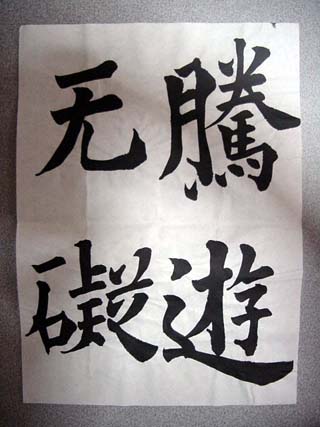 騰遊
无礙